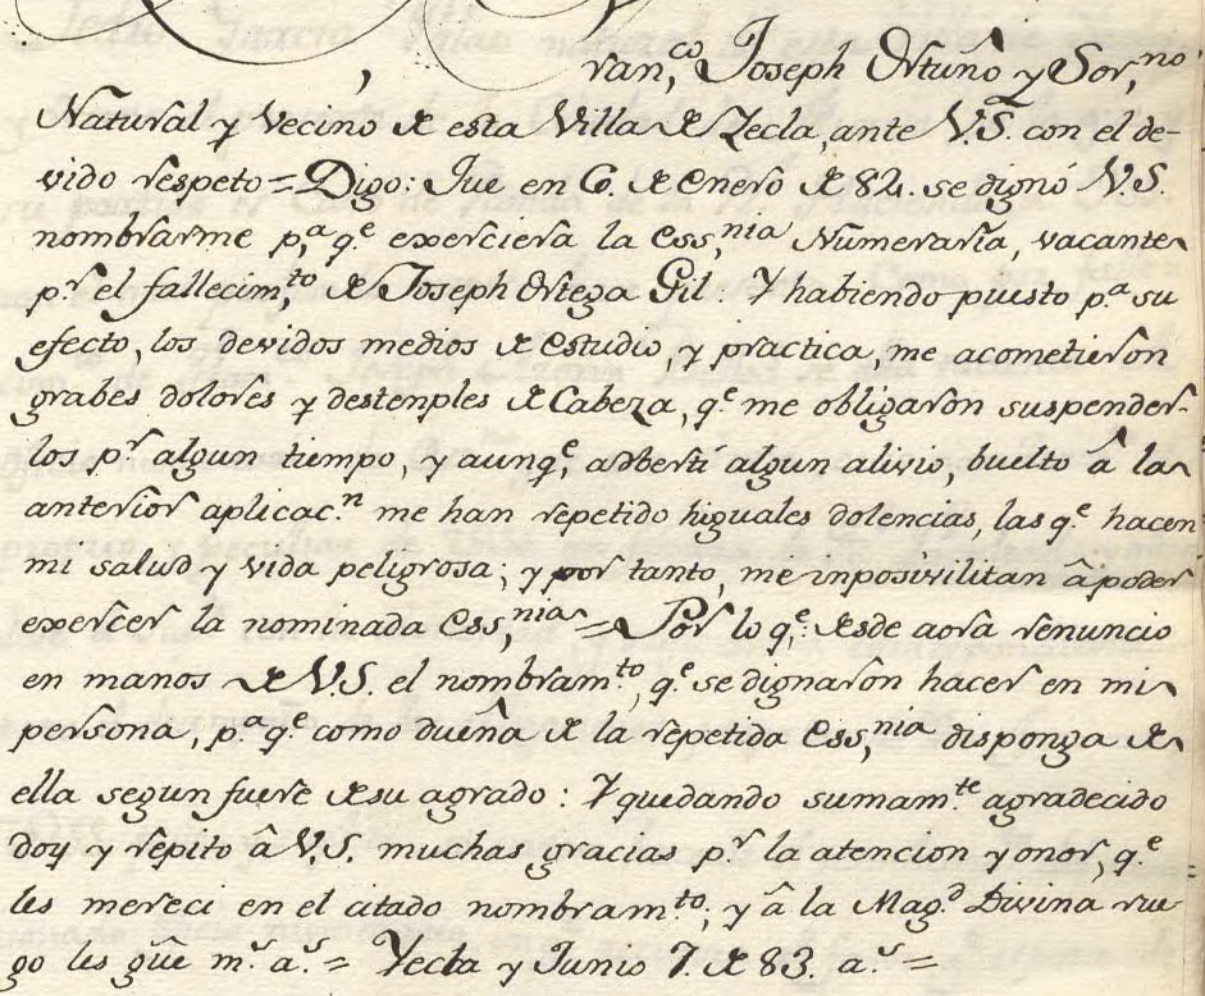 ran,co Joseph Ortuño y Sor,no
Natural y Vecino de esta Villa de Yecla, ante V.S. con el de-
vido respeto = Digo: Que en 6. de Enero de 82. se dignó V.S.
nombrarme p,a q.e exerciera la Ess,nia Numeraria, vacante
p.r el fallecim,to de Joseph Ortega Gil: Y habiendo puesto p.a su
efecto, los devidos medios de estudio, y practica, me acometieron
grabes dolores y destenples de Cabeza, q.e me obligaron suspender-
los p.r algun tiempo, y aunq,e adberti algun alivio, buelto â la
anterior aplicac.n me han repetido higuales dolencias, las q.e hacen
mi salud y vida peligrosa; y por tanto, me inposivilitan â poder
exercer la nominada Ess,nia = Por lo q,e: desde aora renuncio
en manos de V.S. el nombram,to, q.e se dignaron hacer en mi
persona, p.a q.e como dueña de la repetida Ess,nia disponga de
ella segun fuere de su agrado: Y quedando sumam.te agradecido
doy y repito â V.S. muchas gracias p.r la atencion y onor, q.e
les mereci en el citado nombram.to; y â la Mag.d Divina rue-
go les gûe m.s a.s = Yecla y Junio 7. de 83. a.s =